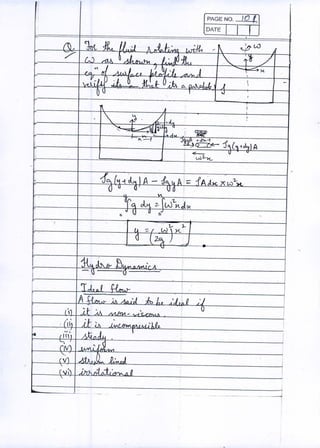 PAGE NO. 101
DATE
Q. For the fluid rotating with
ω as shown, find the
eqn of surface profile and
verify also that its a parabola
ω
y
x
y
dy
x
dx
ρg(y+dy)A
ω²x
ρg(y+dy)A - ρgyA = ρAdx × ω²x
∫g dy = ∫ω²xdx
y = (ω²/2g) x²
Hydro Dynamics
Ideal flow
A flow is said to be ideal if
(i) it is non-viscous.
(ii) it is incompressible
(iii) steady.
(iv) uniform
(v) stream lined
(vi) irrotational